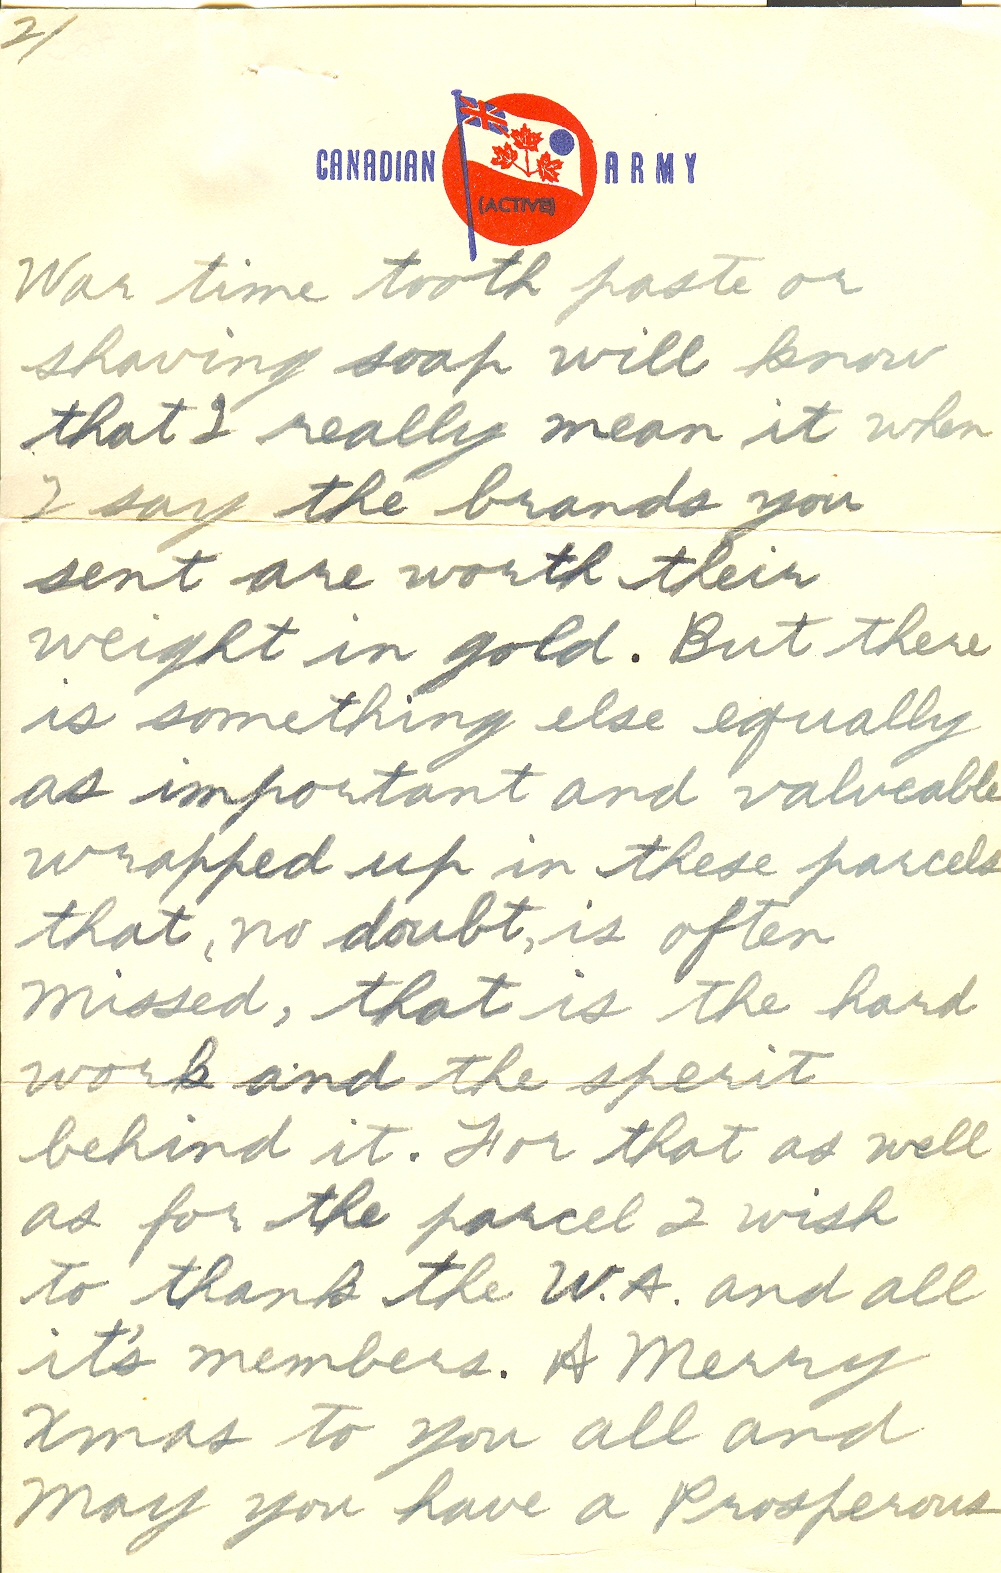 2/
CANADIAN ARMY
(ACTIVE)
War time tooth paste or
shaving soap will know
that I really mean it when
I say the brands you
sent are worth their
weight in gold. But there
is something else equally
as important and valueable
wrapped up in these parcels
that, no doubt, is often
missed, that is the hard
work and the sperit
behind it. For that as well
as for the parcel I wish
to thank the W.A. and all
it's members. A Merry
Xmas to you all and
May you have a Prosperous